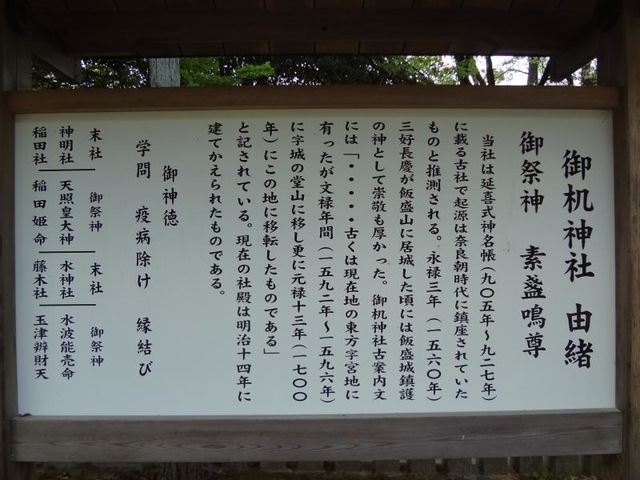 御机神社 由緒
御祭神 素盞鳴尊
当社は延喜式神名帳(九〇五年～九二七年)
に載る古社で起源は奈良朝時代に鎮座されていた
ものと推測される。永禄三年(一五六〇年)
三好長慶が飯盛山に居城した頃には飯盛城鎮護
の神として崇敬も厚かった。御机神社古案内文
には「・・・・・古くは現在地の東方字宮地に
有ったが文禄年間(一五九二年～一五九六年)
に字城の堂山に移し更に元禄十三年(一七〇〇
年)にこの地に移転したものである」
と記されている。現在の社殿は明治十四年に
建てかえられたものである。
御神徳
学問 疫病除け 縁結び
末社 御祭神 末社 御祭神
神明社 天照皇大神 水神社 水波能売命
稲田社 稲田姫命 藤木社 玉津辨財天